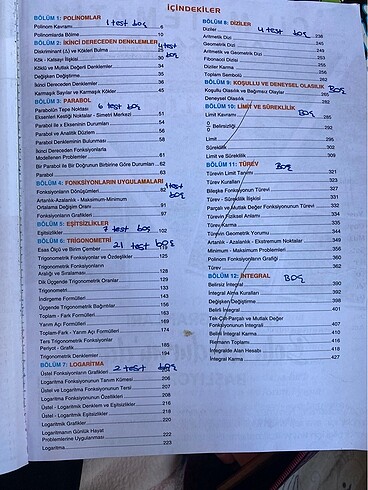 İÇİNDEKİLER
BÖLÜM 1: POLİNOMLAR 1 test boş
Polinom Kavramı 6
Polinomlarda Bölme 10
BÖLÜM 2: İKİNCİ DERECEDEN DENKLEMLER 4 test boş
Diskriminant (Δ) ve Kökleri Bulma 23
Kök - Katsayı İlişkisi 30
Köklü ve Mutlak Değerli Denklemler
Değişken Değiştirme 35
İkinci Dereceden Denklemler
Karmaşık Sayılar ve Karmaşık Kökler 45
BÖLÜM 3: PARABOL
Parabolün Tepe Noktası 6 test boş
Eksenleri Kestiği Noktalar - Simetri Merkezi 51
Parabol ile x Ekseninin Durumları 54
Parabol ve Analitik Düzlem 56
Parabol Denkleminin Bulunması 58
İkinci Dereceden Fonksiyonlarla
Modellenen Problemler 61
Bir Parabol ile Bir Doğrunun Birbirine Göre Durumu 62
Parabol
BÖLÜM 4: FONKSİYONLARIN UYGULAMALARI 1 test boş
Fonksiyonların Dönüşümleri 82
Artanlık-Azalanlık - Maksimum-Minimum
Ortalama Değişim Oranı 91
Fonksiyonların Grafikleri 97
BÖLÜM 5: EŞİTSİZLİKLER
Eşitsizlikler 7 test boş 102
BÖLÜM 6: TRİGONOMETRİ 21 test boş
Esas Ölçü ve Birim Çember 122
Trigonometrik Fonksiyonlar ve Özdeşlikler 125
Trigonometrik Fonksiyonların
Aralığı ve Sıralanması 128
Dik Üçgende Trigonometrik Oranlar 130
Trigonometri
İndirgeme Formülleri 143
Üçgende Trigonometrik Bağıntılar 156
Toplam - Fark Formülleri 163
Yarım Açı Formülleri 169
Toplam-Fark - Yarım Açı Formülleri 174
Ters Trigonometrik Fonksiyonlar
Periyot - Grafik 185
Trigonometrik Denklemler 194
BÖLÜM 7: LOGARİTMA
Üstel Fonksiyonların Grafikleri 2 test boş
Logaritma Fonksiyonunun Tanım Kümesi 206
Üstel ve Logaritma Fonksiyonunun Tersi 207
Logaritma Fonksiyonunun Özellikleri 208
Üstel - Logaritmik Denklem ve Eşitsizlikler 216
Üstel - Logaritmik Eşitsizlikler 218
Logaritmik Grafikler 220
Logaritmanın Günlük Hayat
Problemlerine Uygulanması 222
Logaritma 223
BÖLÜM 8: DİZİLER
Diziler 4 test boş 236
Aritmetik Dizi 245
Geometrik Dizi
Aritmetik ve Geometrik Dizi 253
Fibonacci Dizisi 255
Diziler Karma
Toplam Sembolü 262
BÖLÜM 9: KOŞULLU VE DENEYSEL OLASILIK Boş
Koşullu Olasılık ve Bağımsız Olaylar
Deneysel Olasılık 282
BÖLÜM 10: LİMİT VE SÜREKLİLİK
Limit Kavramı Boş 285
0 Belirsizliği 292
0
Limit 295
Süreklilik 302
Limit ve Süreklilik 309
BÖLÜM 11: TÜREV Boş
Türevin Limit Tanımı 321
Türev Kuralları 323
Bileşke Fonksiyonun Türevi 327
Türev - Süreklilik İlişkisi 331
Parçalı ve Mutlak Değer Fonksiyonunun Türevi 332
Türevin Fiziksel Anlamı 334
Türev Karma 335
Türevin Geometrik Yorumu 344
Artanlık - Azalanlık - Ekstremum Noktalar 349
Minimum - Maksimum Problemleri 356
Polinom Fonksiyonların Grafiği 360
Türev 362
BÖLÜM 12: İNTEGRAL Boş
Belirsiz İntegral 380
İntegral Alma Kuralları 392
Değişken Değiştirme 398
Belirli İntegral 401
Tek-Çift-Parçalı ve Mutlak Değer
Fonksiyonunun İntegrali 407
Belirli İntegral Karma 410
Riemann Toplamı 416
İntegralde Alan Hesabı 418
İntegral Karma 427